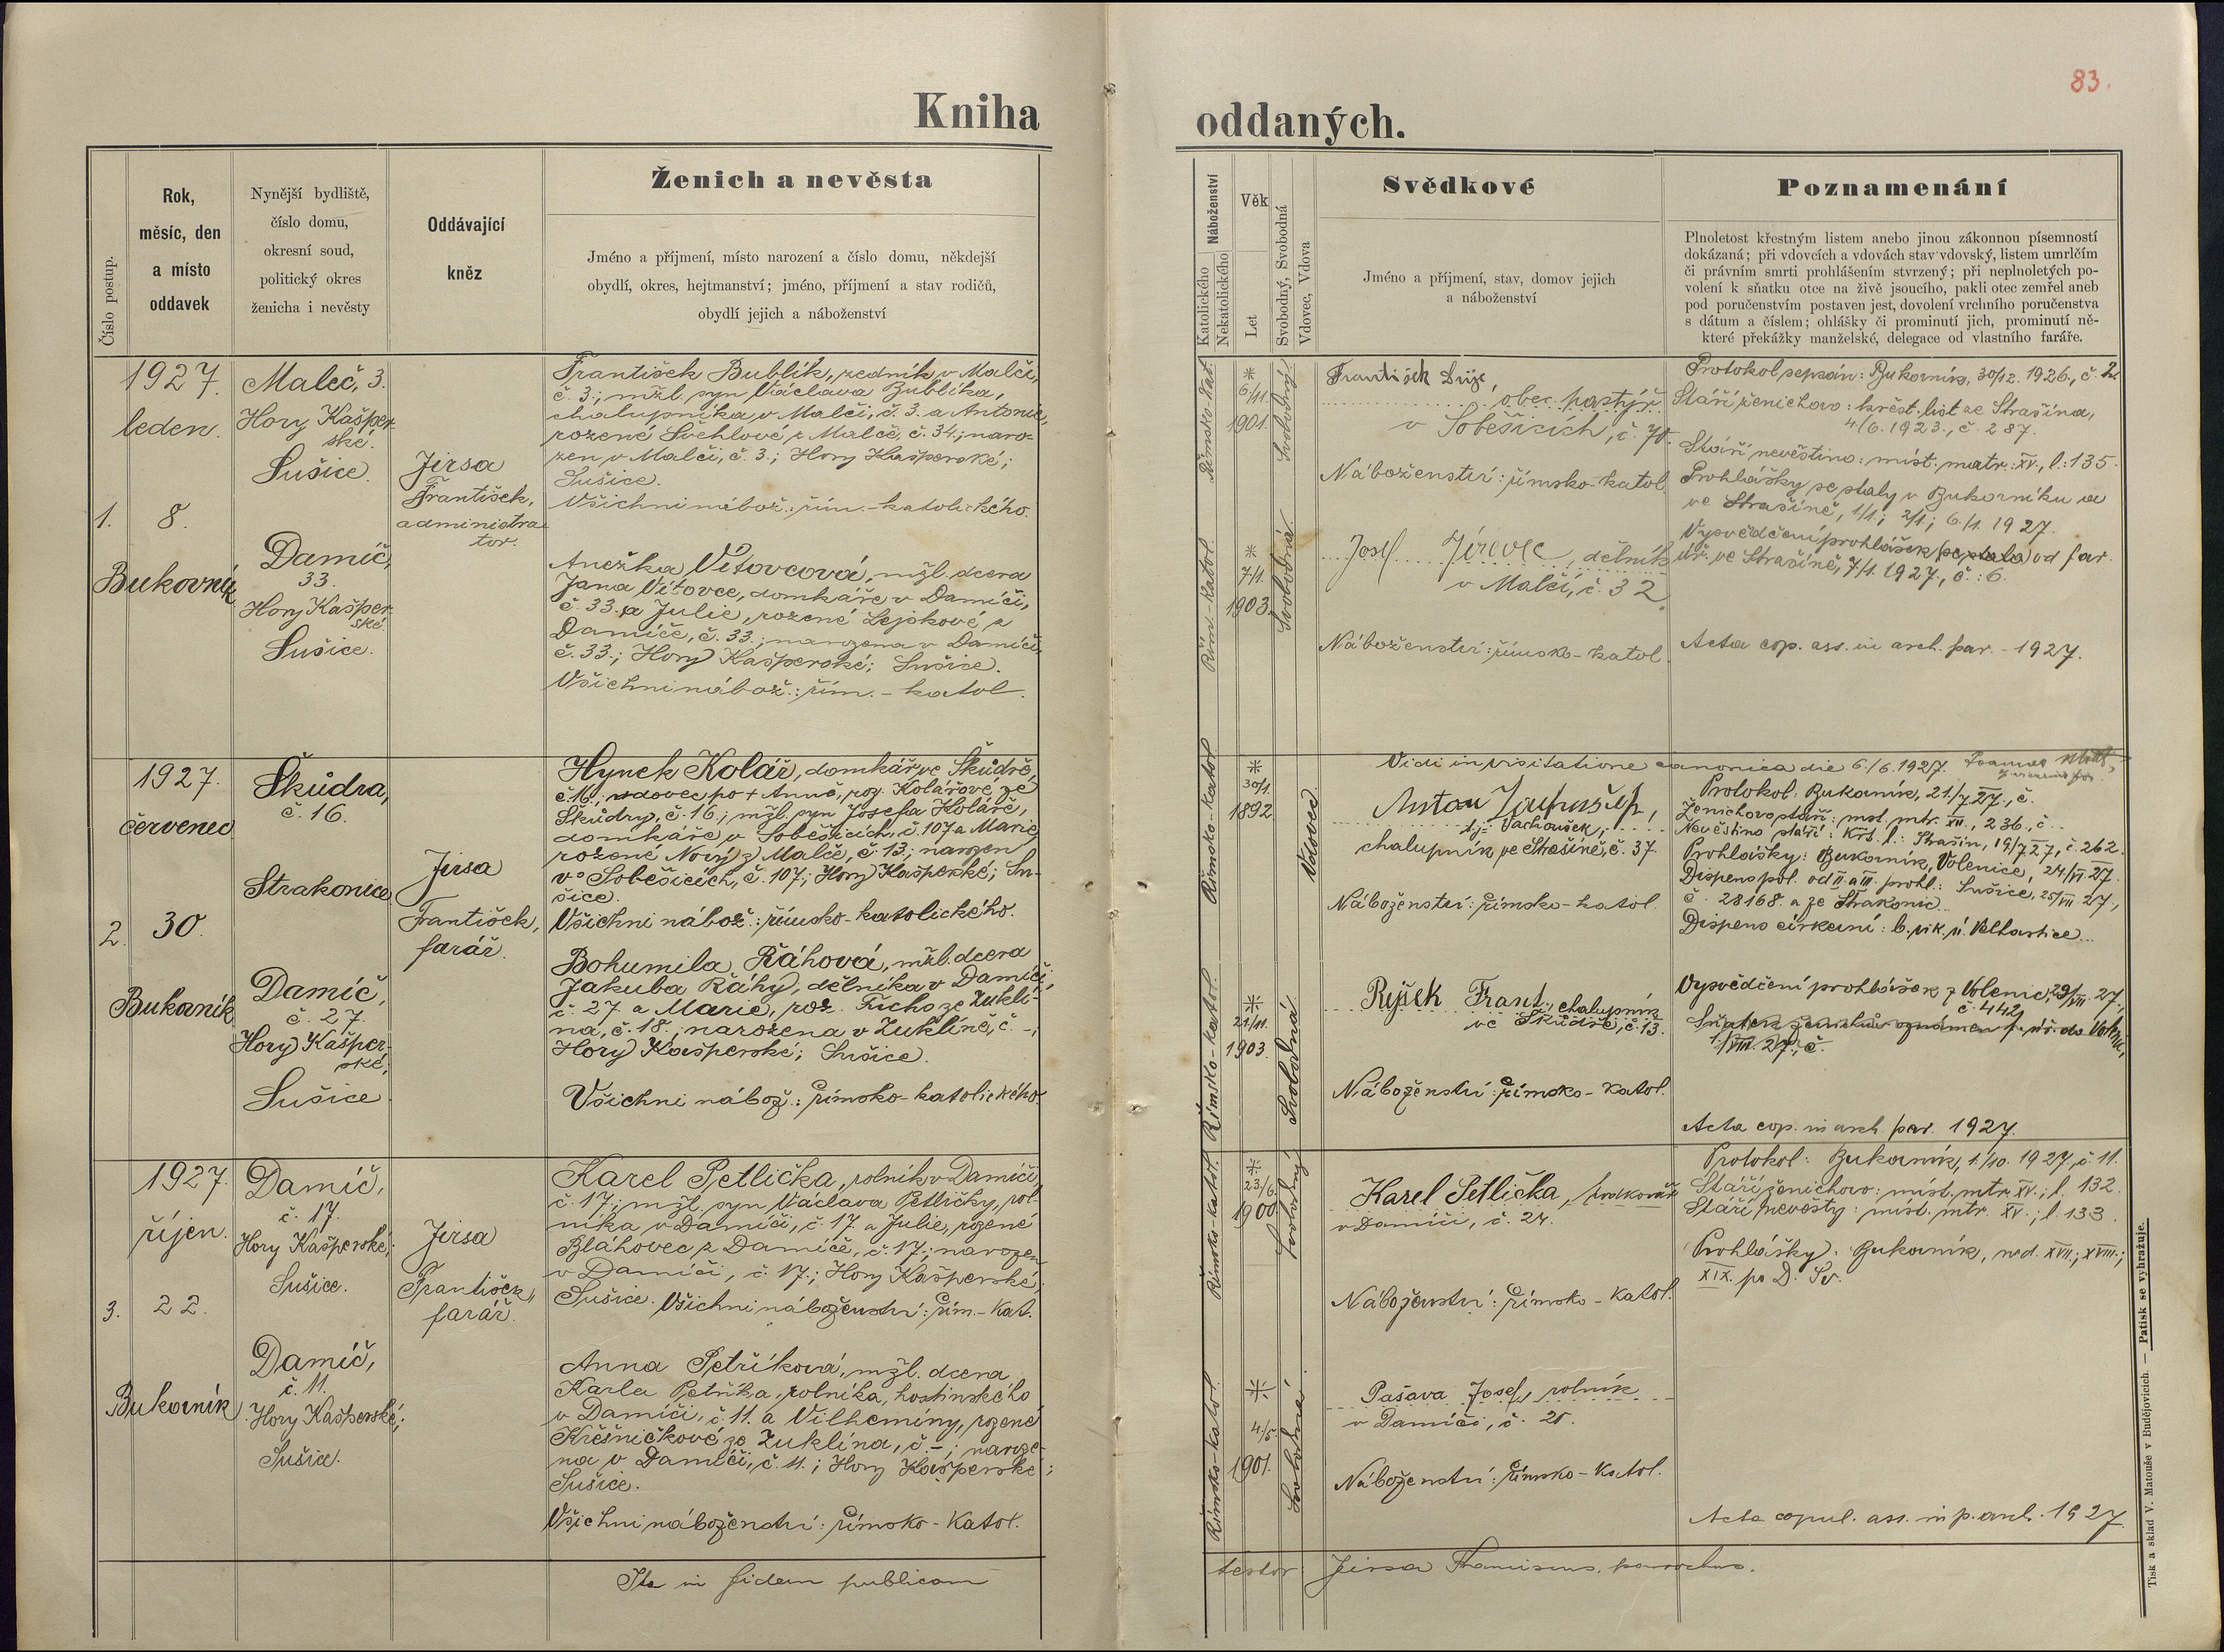 83.
Kniha oddaných.
Číslo postup.
Rok,
měsíc, den
a místo
oddavek
Nynější bydliště,
číslo domu,
okresní soud,
politický okres
ženicha i nevěsty
Oddávající
kněz
Ženich a nevěsta
Jméno a příjmení, místo narození a číslo domu, někdejší
obydlí, okres, hejtmanství; jméno, příjmení a stav rodičů,
obydlí jejich a náboženství
Náboženství
Katolického
Nekatolického
Věk
Let
Svobodný, Svobodná
Vdovec, Vdova
Svědkové
Jméno a příjmení, stav, domov jejich
a náboženství
Poznamenání
Plnoletost křestným listem anebo jinou zákonnou písemností
dokázaná; při vdovcích a vdovách stav vdovský, listem umrlčím
či právním smrti prohlášením stvrzený; při neplnoletých po-
volení k sňatku otce na živě jsoucího, pakli otec zemřel aneb
pod poručenstvím postaven jest, dovolení vrchního poručenstva
s dátum a číslem; ohlášky či prominutí jich, prominutí ně-
které překážky manželské, delegace od vlastního faráře.
1.
1927.
leden.
8.
Bukovník
Maleč, 3.
Hory Kašper-
ské.
Sušice.
Damíč,
33.
Hory Kašper-
ské.
Sušice.
Jirsa
František,
administra
tor.
František Bublík, zedník v Malči,
č. 3.; mžl. syn Václava Bublíka,
chalupníka v Malči, č. 3. a Antonie,
rozené Švehlové z Malče, č. 34.; naro-
zen v Malči, č. 3.; Hory Kašperské;
Sušice.
Všichni nábož.: řím.-katolického.
Anežka Vítovcová, mžl. dcera
Jana Vítovce, domkáře v Damíči,
č. 33. a Julie, rozené Lejskové z
Damíče, č. 33.; narozena v Damíči,
č. 33.; Hory Kašperské; Sušice.
Všichni nábož.: řím.-katol.
Římsko-kat.
* 6/11. 1901.
Svobodný.
Řím.-katol.
* 7/1. 1903.
Svobodná.
František
obec. pastýř
v Soběšicích, č. 70.
Náboženství: římsko-katol.
Josef Jírovec, dělník
v Malči, č. 32.
Náboženství: římsko-katol.
Protokol sepsán: Bukovník, 30/12. 1926., č. 2.
Stáří ženichovo: křest. list ze Strašína,
4/6. 1923., č. 287.
Stáří nevěstino: míst. matr. XV., l. 135.
Prohlášky se staly v Bukovníku a
ve Strašíně, 1/1.; 2/1.; 6./1. 1927.
Vysvědčení prohlášek (se stala) od far.
úř. ve Strašíně, 7/1. 1927., č.: 6.
Acta cop. ass. in arch. par. - 1927.
2.
1927.
červenec
30.
Bukovník
Škúdra,
č. 16.
Strakonice
Damíč,
č. 27.
Hory Kašper-
ské,
Sušice
Jirsa
František,
farář.
Hynek Kolář, domkář ve Škúdře,
č. 16.; vdovec po + Anně, roz. Kolářové ze
Škúdry, č. 16.; mžl. syn Josefa Koláře,
domkáře v Soběšicích, č. 107 a Marie,
rozené Nový z Malče, č. 13.; narozen
v Soběšicích, č. 107.; Hory Kašperské; Su-
šice.
Všichni nábož.: římsko-katolického.
Bohumila Ráhová, mžl. dcera
Jakuba Ráhy, dělníka v Damíči,
č. 27. a Marie, roz. Fricho ze Zuklí-
na, č. 18.; narozena v Zuklíně, č. -;
Hory Kašperské; Sušice.
Všichni nábož.: římsko-katolického.
Římsko-katol.
* 30/1. 1892.
Vdovec
Římsko-katol.
* 21/11. 1903.
Svobodná
Vidi in visitatione canonica die 6./6. 1927.
Antan
tj. Vachoušek,
chalupník ve Strašíně, č. 37.
Náboženství: římsko-katol.
Rejšek Frant., chalupník
ve Škúdře, č. 13.
Náboženství: římsko-katol.
Protokol: Bukovník, 21/7. 27., č.
Ženichovo stáří: míst. mtr. XII., 236., č..
Nevěstino stáří: křt. l.: Strašín, 19/7. 27., č. 262.
Prohlášky: Bukovník, Volenice, 24/VII. 27.
Dispens pol. od II. a III. prohl.: Sušice, 25/VII. 27.,
č. 28168. a ze Strakonic
Dispens církevní: b. vik. ú. Velhartice.
Vysvědčení prohlášek z Volenic, 29/VII. 27.,
č. 442.
Sňatek oznámen f. úř. do Volenic,
1./VIII. 27., č.
Acta cop. in arch. par. 1927.
3.
1927.
říjen.
22.
Bukovník
Damíč,
č. 17.
Hory Kašperské;
Sušice.
Damíč,
č. 11.
Hory Kašperské;
Sušice.
Jirsa
František,
farář.
Karel Petlička, rolník v Damíči,
č. 17.; mžl. syn Václava Petličky, rol-
níka v Damíči, č. 17. a Julie, rozené
Bláhovec z Damíče, č. 17.; narozen
v Damíči, č. 17.; Hory Kašperské;
Sušice. Všichni náboženství: řím.-kat.
Anna Petříková, mžl. dcera
Karla Petříka, rolníka, hostinského
v Damíči, č. 11. a Vilhemíny, rozené
Křesničkové ze Zuklína, č. -; naroze-
na v Damíči, č. 11.; Hory Kašperské;
Sušice.
Všichni náboženství: římsko-katol.
Římsko-katol.
* 23/6. 1900.
Svobodný
Římsko-katol.
* 4/5. 1901.
Svobodná
Karel Petlička,
v Damíči, č. 24.
Náboženství: římsko-katol.
Pašava Josef, rolník
v Damíči, č. 25.
Náboženství: římsko-katol.
Protokol: Bukovník, 1./10. 1927., č. 11.
Stáří ženichovo: míst. mtr. XV.; l. 132.
Stáří nevěsty: míst. mtr. XV.; l. 133.
Prohlášky: Bukovník, ned. XVII.; XVIII.;
XIX. po D. Sv.
Acta copul. ass. in p. arch. 1927.
Ita in fidem publicam testor: Jirsa Franciscus, parochus.
Tisk a sklad V. Matouše v Budějovicích. — Patisk se vyhražuje.